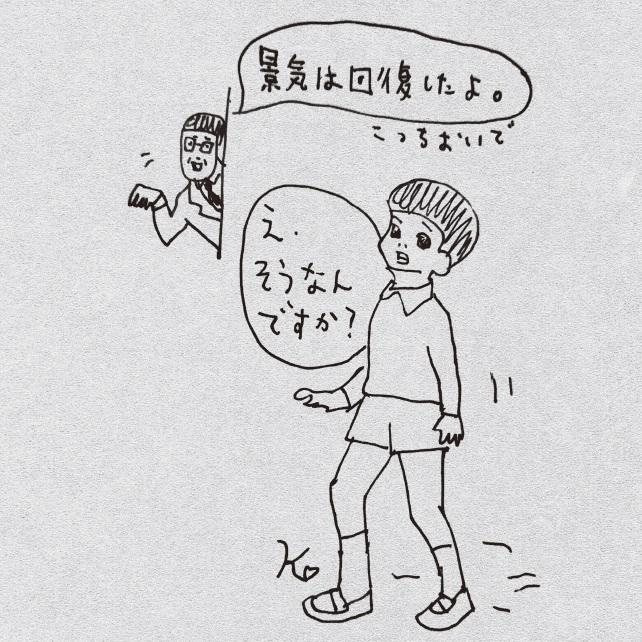 景気は回復したよ。
こっちおいで
え.
そうなん
ですか?
K